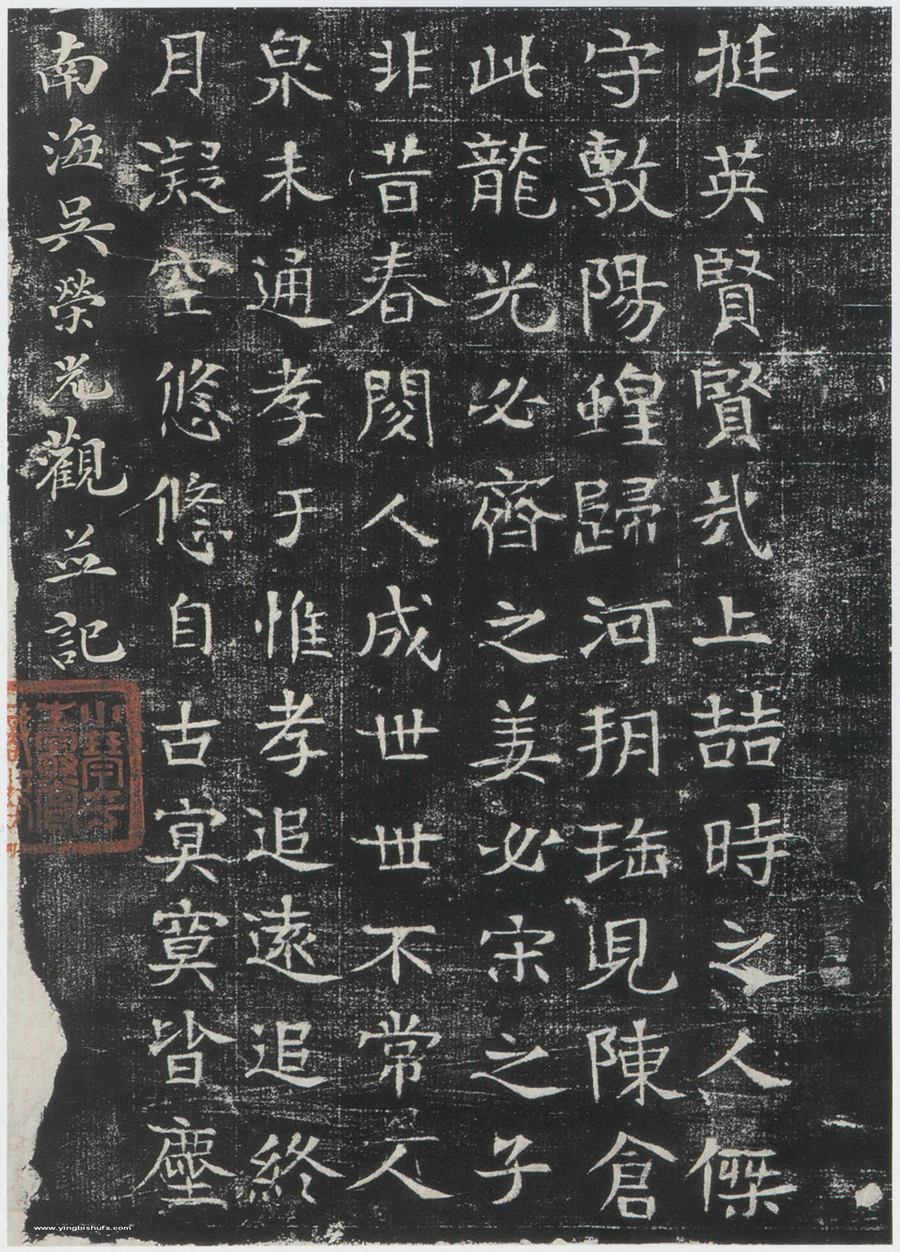 挺英賢賢哉上喆時之人傑
守敷陽蝗歸河朔珤見陳倉
此龍光必齊之姜必宋之子
非昔春閱人成世世不常人
泉未通孝于惟孝追遠追終
月凝空悠悠自古寞寞皆塵
南海吳榮光觀並記
www.yingbishufa.com